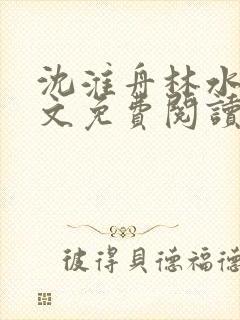 沈淮舟林水
文免費閱讀
彼得貝德福德